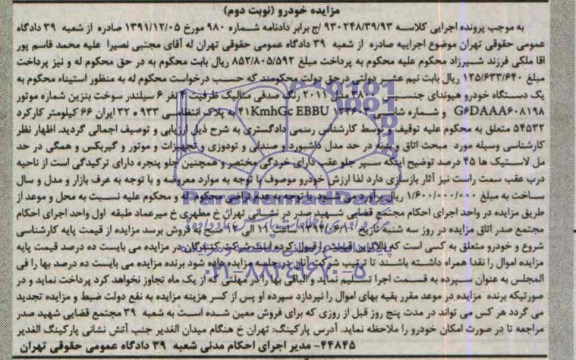 مزایده خودرو (نوبت دوم)
به موجب پرونده اجرایی کلاسه ۹۳۰۲۴۸/۳۹/۹۳ ج/ برابر دادنامه شماره ۹۸۰ مورخ ۱۳۹۱/۱۲/۰۵ صادره از شعبه ۳۹ دادگاه
عمومی حقوقی تهران موضوع اجراییه صادره از شعبه ۳۹ دادگاه عمومی حقوقی تهران له آقای مجتبی نصیرا علیه محمد قاسم پور
اقا ملکی فرزند شیرزاد محکوم علیه محکوم به پرداخت مبلغ ۸۵۲/۸۰۵/۵۹۲ ریال بابت محکوم به در حق محکوم له و نیز پرداخت
مبلغ ۱۲۵/۶۳۳/۶۴۰ ریال بابت نیم عشر دولتی در حق دولت محکومند که حسب درخواست محکوم له به منظور استیفاء محکوم به
یک دستگاه خودرو هیوندای جنسیس ۳۸۰ مدل ۲۰۱۱ رنگ صدفی متالیک ظرفیت ۴ نفر ۶ سیلندر سوخت بنزین شماره موتور
G6DAAA۶۰۸۱۹۸ و شماره شاسی به پلاک انتظامی ۹۳۳ ه ۳۲ ایران ۶۶ کیلومتر کارکرد
۵۴۵۳۲ متعلق به محکوم علیه توقیف و توسط کارشناس رسمی دادگستری به شرح ذیل ارزیابی و توصیف اجمالی گردید. اظهار نظر
کارشناسی وسیله مورد مبحث اتاق و بقیه در حد مدل داشبورد و صندلی و تودوزی و تجهیزات و موتور و گیربکس و همگی در حد
مدل لاستیک ها ۴۵ درصد توضیح اینکه سپر جلو عقب دارای خوردگی مختصر و همچنین جلو پنجره دارای ترکیدگی است از ناحیه
درب عقب سمت راست نیز آثار بازسازی دارد لذا ارزش خودرو موصوف با توجه به موارد معروضه و با توجه به عرف بازار و مدل و سال
ساخت به مبلغ ۱/۶۰۰/۰۰۰/۰۰۰ ریال محکوم علیه نسبت به محل و موعد از
طریق مزایده در واحد اجرای احکام مجتمع قضایی شهید صدر به نشانی تهران خ مطهری خ میرعماد طبقه اول واحد اجرای احکام
مجتمع صدر اتاق مزایده در روز سه شنبه ساعت ۱۱ الی ۱۲ به فروش برسد مزایده از قیمت پایه کارشناسی
شروع و خودرو متعلق به کسی است که بالاترین قیمت را قبول کرده باشد شرکت کنندگان در مزایده می بایست ده درصد قیمت پایه
مزایده اموال را نقدا همراه داشته باشند تا ترتیب شرکت آنان در جلسه مزایده داده شود برنده مزایده می بایست ده درصد بها را فی
المجلس به عنوان سپرده به قسمت اجرا تسلیم نماید و الباقی بها را در مهلتی که از یک ماه تجاوز نخواهد کرد پرداخت نماید و در
صورتیکه برنده مزایده در موعد مقرر بقیه بهای اموال را نپردازد سپرده او پس از کسر هزینه مزایده به نفع دولت ضبط و مزایده تجدید
می گردد هر کس می تواند در مدت پنج روز قبل از روزی که برای فروش معین شده است به شعبه ۳۹ مجتمع قضایی شهید صدر
مراجعه تا در صورت امکان خودرو را ملاحظه نماید. آدرس پارکینگ: تهران خ هنگام میدان الغدیر جنب آتش نشانی پارکینگ الغدیر
۴۴۸۴۵- مدیر اجرای احکام مدنی شعبه ۳۹ دادگاه عمومی حقوقی تهران
ParsNamadData
۰۲۱-۸۸۳۴۹۶۷۰-۵